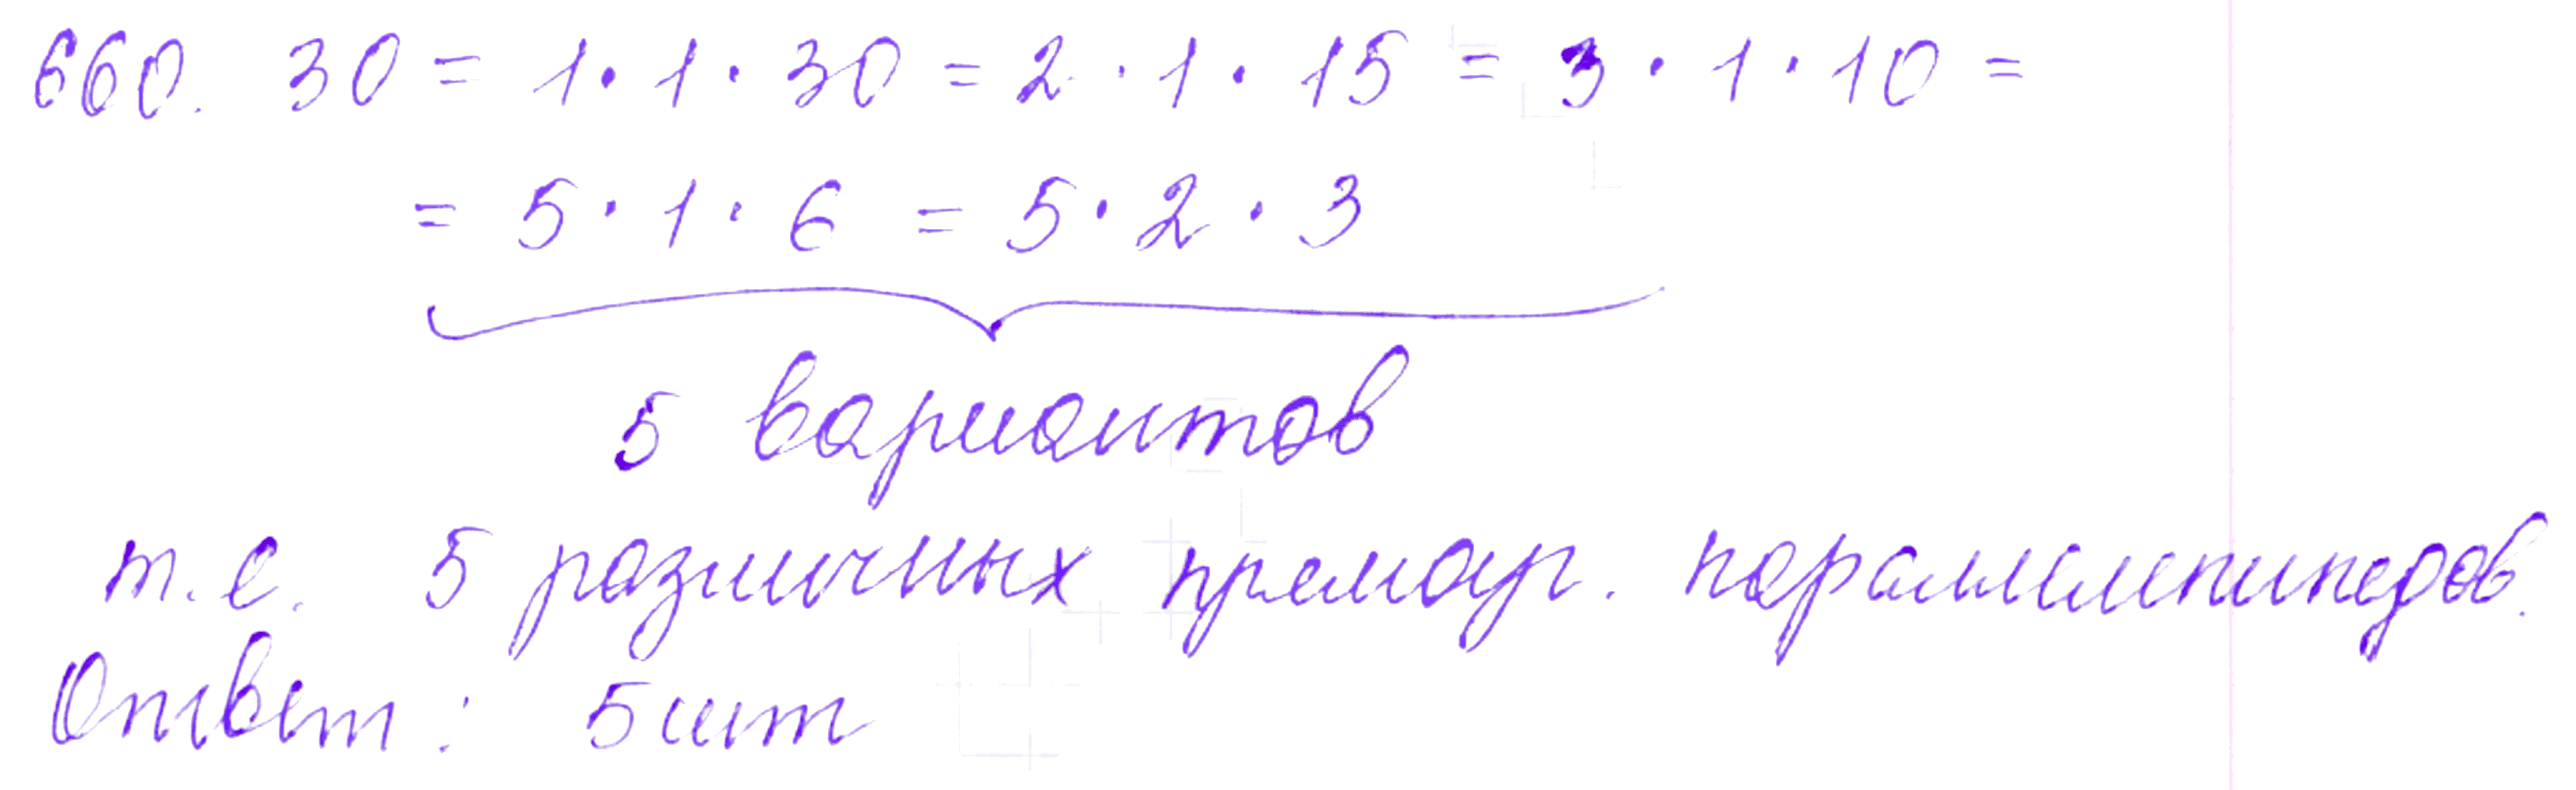 660. 30 = 1 · 1 · 30 = 2 · 1 · 15 = 3 · 1 · 10 =
= 5 · 1 · 6 = 5 · 2 · 3
5 вариантов
т.е. 5 различных прямоуг. параллелепипедов.
Ответ: 5 шт